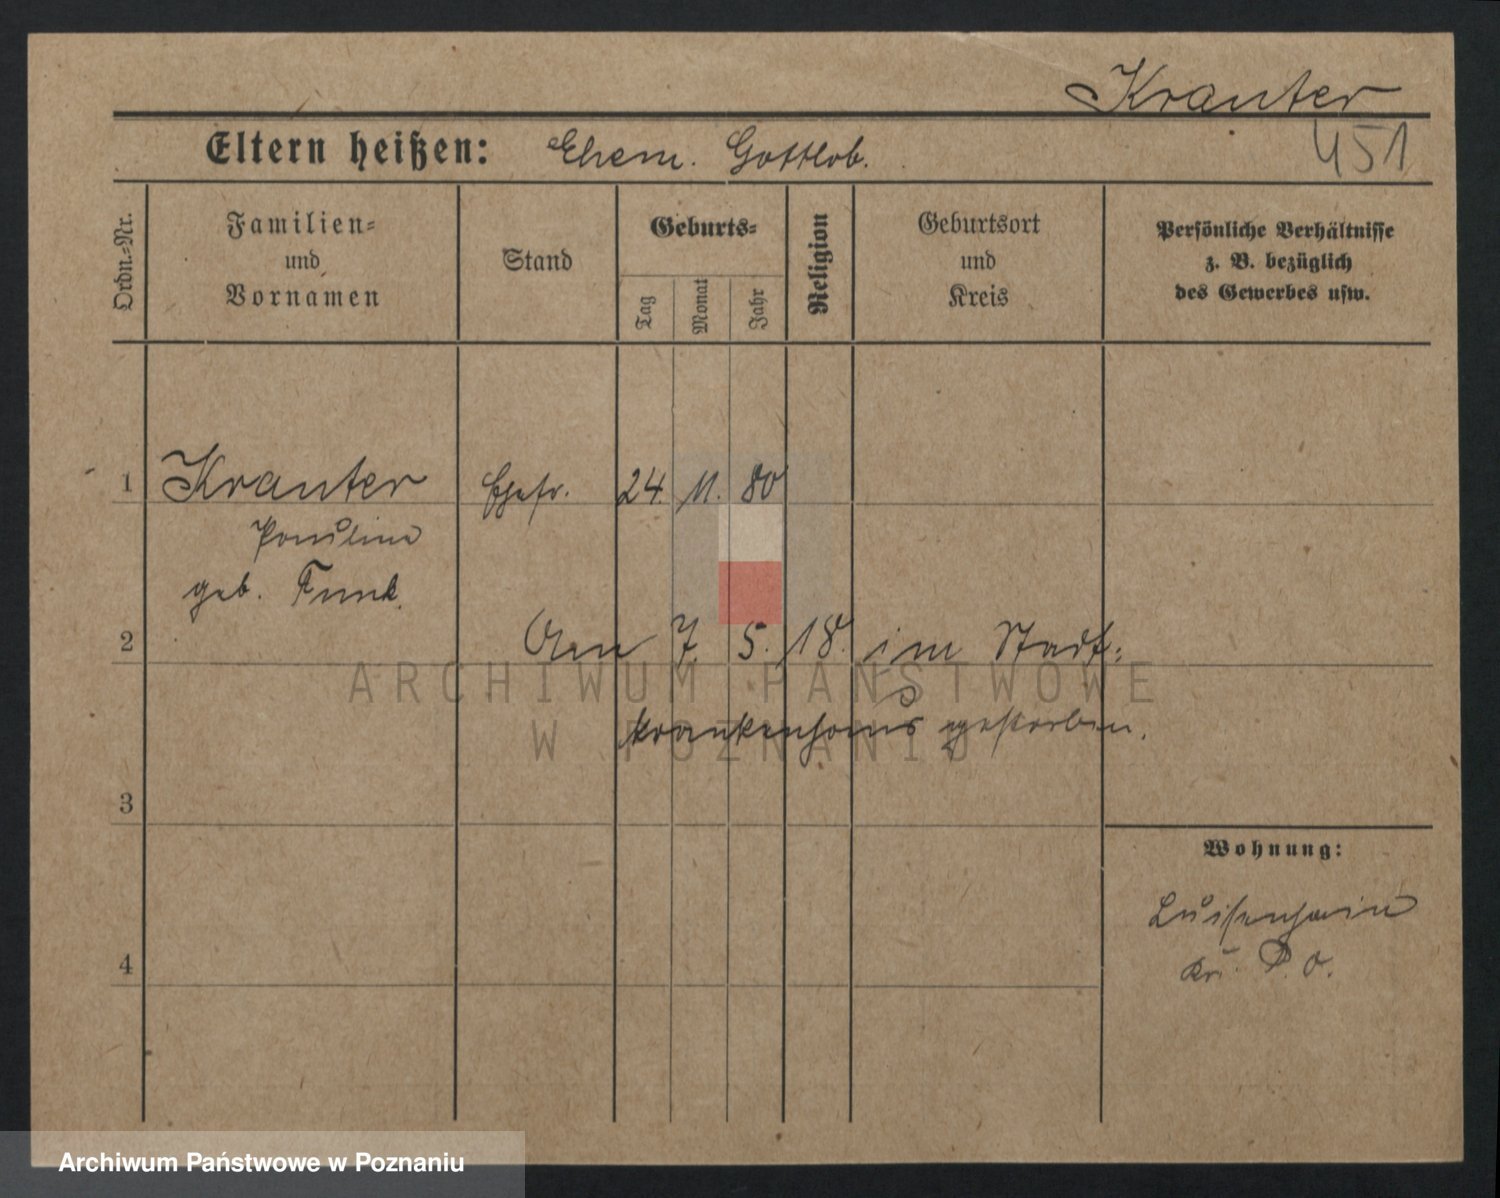 Kranter
451
Eltern heißen: Ehem. Gottlob.
Ordn.-Nr.
Familien-
und
Vornamen
Stand
Geburts-
Tag
Monat
Jahr
Religion
Geburtsort
und
Kreis
Persönliche Verhältnisse
z. B. bezüglich
des Gewerbes usw.
1 Kranter Ehefr. 24. 11. 80
Pauline
geb. Funk.
2 Am 7. 5. 18. im Stadt-
krankenhaus gestorben.
3
Wohnung:
Luisenhain
Kr. P. O.
4
ARCHIWUM PAŃSTWOWE
W POZNANIU
Archiwum Państwowe w Poznaniu